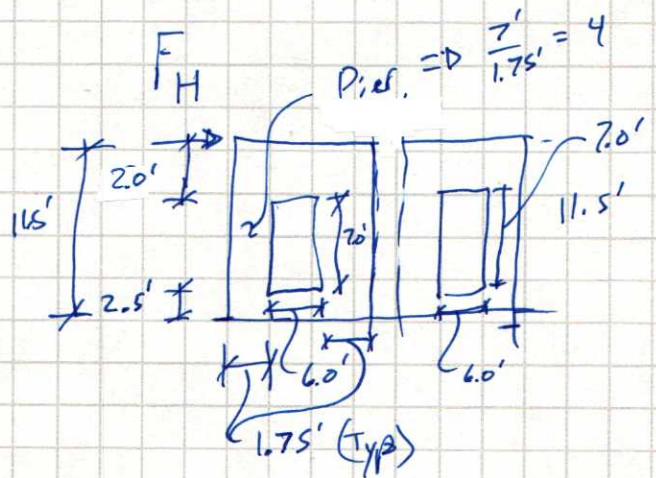 F_H
Pier. => 7'/1.75' = 4
2.0'
7.0'
11.5'
7.0'
11.5'
2.5'
6.0'
6.0'
1.75' (Typ)